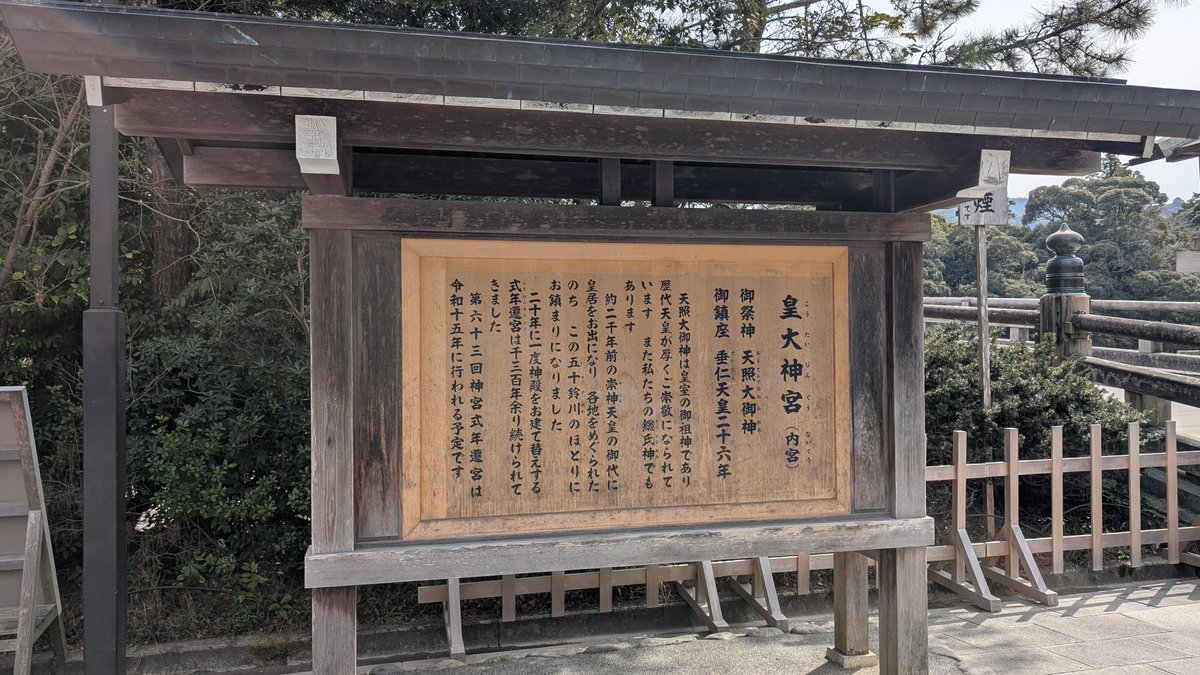 皇大神宮（内宮）
こうたいじんぐう ないくう
御祭神 天照大御神
あまてらすおおみかみ
御鎮座 垂仁天皇二十六年
すいにん
天照大御神は皇室の御祖神であり
歴代天皇が厚くご崇敬になられて
います また私たちの総氏神でも
あります
約二千年前の崇神天皇の御代に
皇居をお出になり 各地をめぐられた
のち この五十鈴川のほとりに
お鎮まりになりました
二十年に一度神殿をお建て替えする
式年遷宮は千三百年余り続けられて
きました
第六十三回神宮式年遷宮は
令和十五年に行われる予定です
煙